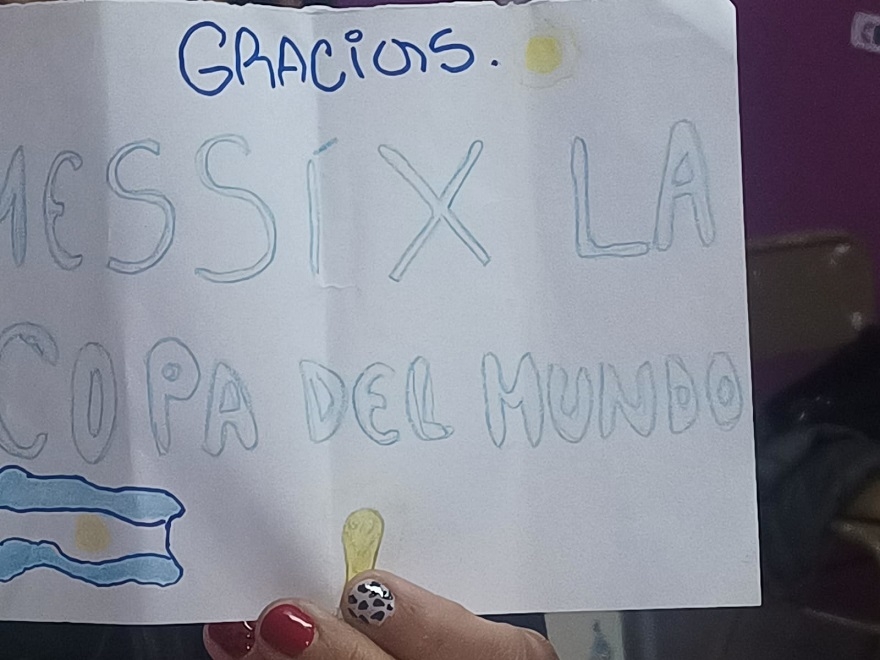 GRACIAS.
MESSÍ X LA
COPA DEL MUNDO